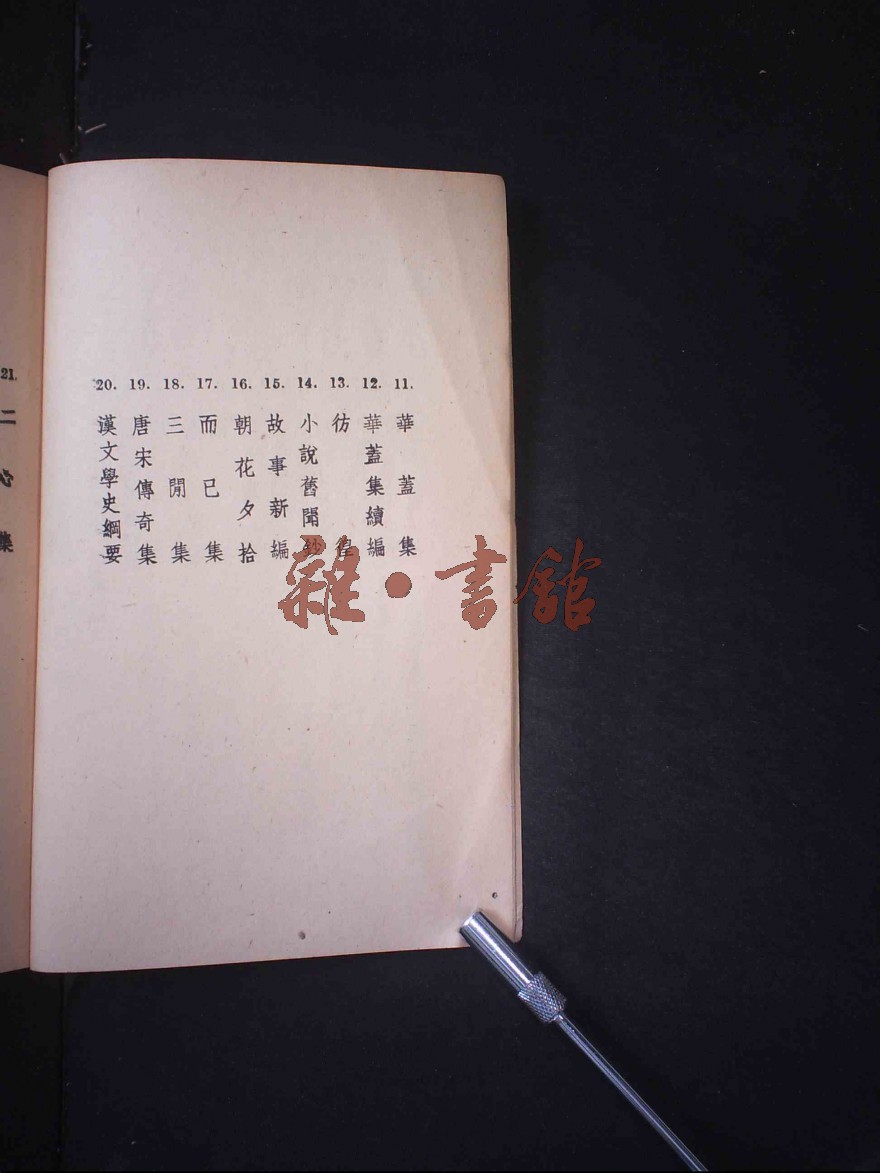 11. 華蓋集
12. 華蓋集續編
13. 彷徨
14. 小說舊聞鈔
15. 故事新編
16. 朝花夕拾
17. 而已集
18. 三閒集
19. 唐宋傳奇集
20. 漢文學史綱要
21. 二心集
雜·書館